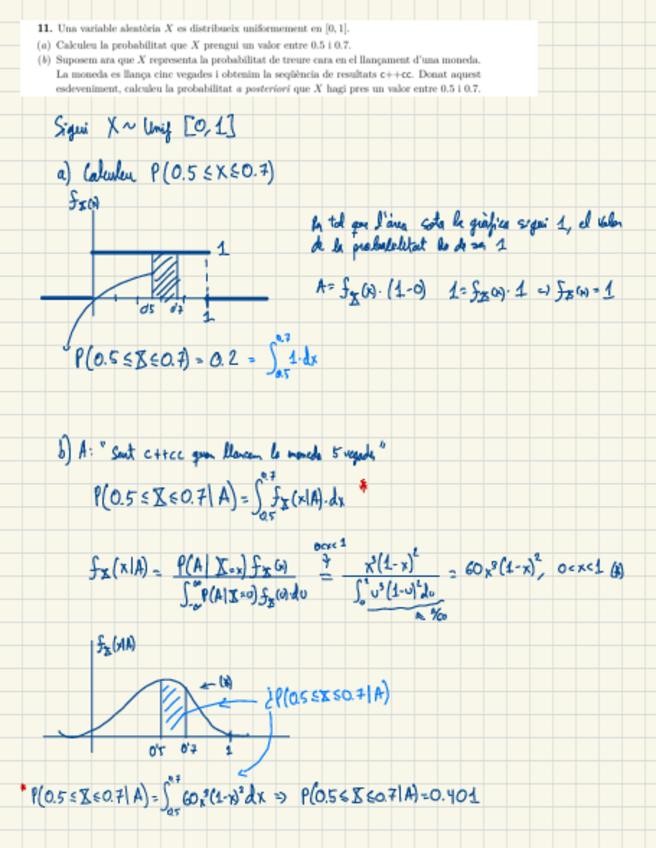 11. Una variable aleatòria X es distribueix uniformement en [0, 1].
(a) Calculeu la probabilitat que X prengui un valor entre 0.5 i 0.7.
(b) Suposem ara que X representa la probabilitat de treure cara en el llançament d'una moneda.
La moneda es llança cinc vegades i obtenim la seqüència de resultats c++cc. Donat aquest
esdeveniment, calculeu la probabilitat a posteriori que X hagi pres un valor entre 0.5 i 0.7.
Sigui X ~ Unif [0,1]
a) Calculeu P(0.5 ≤ X ≤ 0.7)
fX(x)
Per tal que l'àrea sota la gràfica sigui 1, el valor
de la probabilitat ha de ser 1
1
A = fX(x) · (1-0) 1 = fX(x) · 1 ⇒ fX(x) = 1
0'5 0'7 1
P(0.5 ≤ X ≤ 0.7) = 0.2 = ∫_0.5^0.7 1·dx
b) A: "Surt c++cc quan llancem la moneda 5 vegades"
P(0.5 ≤ X ≤ 0.7 | A) = ∫_0.5^0.7 fX(x|A)·dx *
fX(x|A) = P(A | X=x) fX(x) / ∫_-∞^∞ P(A|X=u) fX(u) du = (0<x<1) x³(1-x)² / ∫_0^1 u³(1-u)² du = 60x³(1-x)², 0<x<1 (*)
1/60
fX(x|A)
← (*)
¿P(0.5 ≤ X ≤ 0.7 | A)
0'5 0'7 1
* P(0.5 ≤ X ≤ 0.7 | A) = ∫_0.5^0.7 60x³(1-x)² dx ⇒ P(0.5 ≤ X ≤ 0.7 | A) = 0.401